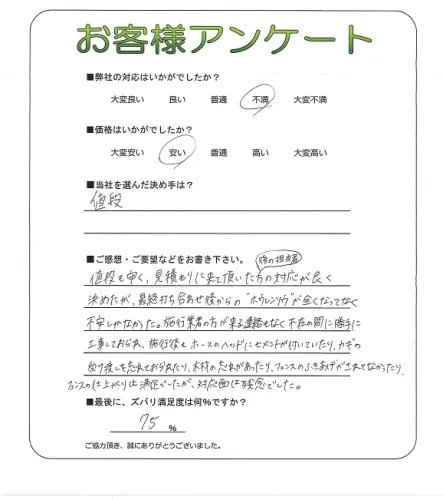 お客様アンケート
■弊社の対応はいかがでしたか?
大変良い 良い 普通 不満 大変不満
■価格はいかがでしたか?
大変安い 安い 普通 高い 大変高い
■当社を選んだ決め手は?
値段
■ご感想・ご要望などをお書き下さい。 の担当者
値段も安く、見積もりに来て頂いた方の対応が良く
決めたが、最終打ち合わせ後からの"ホウレンソウ"が全くなってなく
不安しかなかった。施行業者の方が来る連絡もなく不在の間に勝手に
工事しておられ、施行後もホースのヘッドにセメントが付いていたり、カギの
受け渡しを忘れておられたり、木材の忘れがあったり、フェンスのふきあげがされてなかったり、
フェンスの仕上がりは満足でしたが、対応面は残念でした。
■最後に、ズバリ満足度は何%ですか?
75 %
ご協力頂き、誠にありがとうございました。